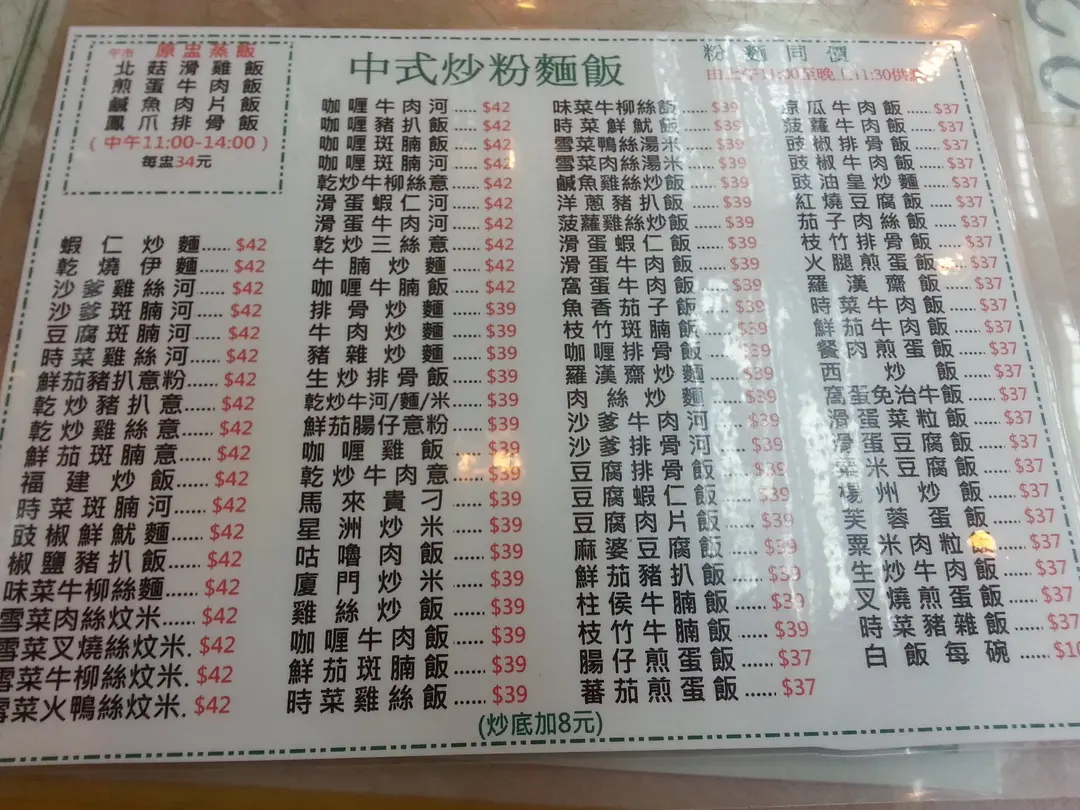 午市 原盅蒸飯
北菇滑雞飯
煎蛋牛肉飯
鹹魚肉片飯
鳳爪排骨飯
(中午11:00-14:00)
每盅34元
中式炒粉麵飯
粉麵同價
由上午11:00至晚上11:30供應
蝦仁炒麵......$42
乾燒伊麵......$42
沙爹雞絲河....$42
沙爹斑腩河....$42
豆腐斑腩河....$42
時菜雞絲河....$42
鮮茄豬扒意粉.....$42
乾炒豬扒意....$42
乾炒雞絲意.....$42
鮮茄斑腩意.....$42
福建炒飯......$42
時菜斑腩河.....$42
豉椒鮮魷麵......$42
椒鹽豬扒飯......$42
味菜牛柳絲麵......$42
雪菜肉絲炆米......$42
雪菜叉燒絲炆米.$42
雪菜牛柳絲炆米.$42
雪菜火鴨絲炆米.$42
咖喱牛肉河.....$42
咖喱豬扒飯.....$42
咖喱斑腩飯.....$42
咖喱斑腩河.....$42
乾炒牛柳絲意.....$42
滑蛋蝦仁河.....$42
滑蛋牛肉河.....$42
乾炒三絲意.....$42
牛腩炒麵.....$42
咖喱牛腩飯.....$42
排骨炒麵......$39
牛肉炒麵......$39
豬雜炒麵......$39
生炒排骨飯......$39
乾炒牛河/麵/米....$39
鮮茄腸仔意粉.....$39
咖喱雞飯......$39
乾炒牛肉意......$39
馬來貴刁......$39
星洲炒米......$39
咕嚕肉飯......$39
廈門炒米......$39
雞絲炒飯......$39
咖喱牛肉飯......$39
鮮茄斑腩飯......$39
時菜雞絲飯......$39
味菜牛柳絲飯.....$39
時菜鮮魷飯.....$39
雪菜鴨絲湯米.....$39
雪菜肉絲湯米.....$39
鹹魚雞絲炒飯.....$39
洋蔥豬扒飯.....$39
菠蘿雞絲炒飯.....$39
滑蛋蝦仁飯.....$39
滑蛋牛肉飯.....$39
窩蛋牛肉飯.....$39
魚香茄子飯.....$39
枝竹斑腩飯.....$39
咖喱排骨飯.....$39
羅漢齋炒麵.....$39
肉絲炒麵.....$39
沙爹牛肉河.....$39
沙爹排骨河.....$39
豆腐排骨飯.....$39
豆腐蝦仁飯.....$39
豆腐肉片飯.....$39
麻婆豆腐飯.....$39
鮮茄豬扒飯.....$39
柱侯牛腩飯......$39
枝竹牛腩飯......$39
腸仔煎蛋飯......$37
蕃茄煎蛋飯......$37
涼瓜牛肉飯.....$37
菠蘿牛肉飯.....$37
豉椒排骨飯.....$37
豉椒牛肉飯.....$37
豉油皇炒麵.....$37
紅燒豆腐飯.....$37
茄子肉絲飯.....$37
枝竹排骨飯.....$37
火腿煎蛋飯.....$37
羅漢齋飯.....$37
時菜牛肉飯.....$37
鮮茄牛肉飯.....$37
餐肉煎蛋飯.....$37
西炒飯.....$37
窩蛋免治牛飯.....$37
滑蛋菜粒飯.....$37
滑蛋豆腐飯.....$37
粟米豆腐飯.....$37
楊州炒飯.....$37
芙蓉蛋飯.....$37
粟米肉粒飯.....$37
生炒牛肉飯.....$37
叉燒煎蛋飯.....$37
時菜豬雜飯.....$37
白飯每碗.....$10
(炒底加8元)